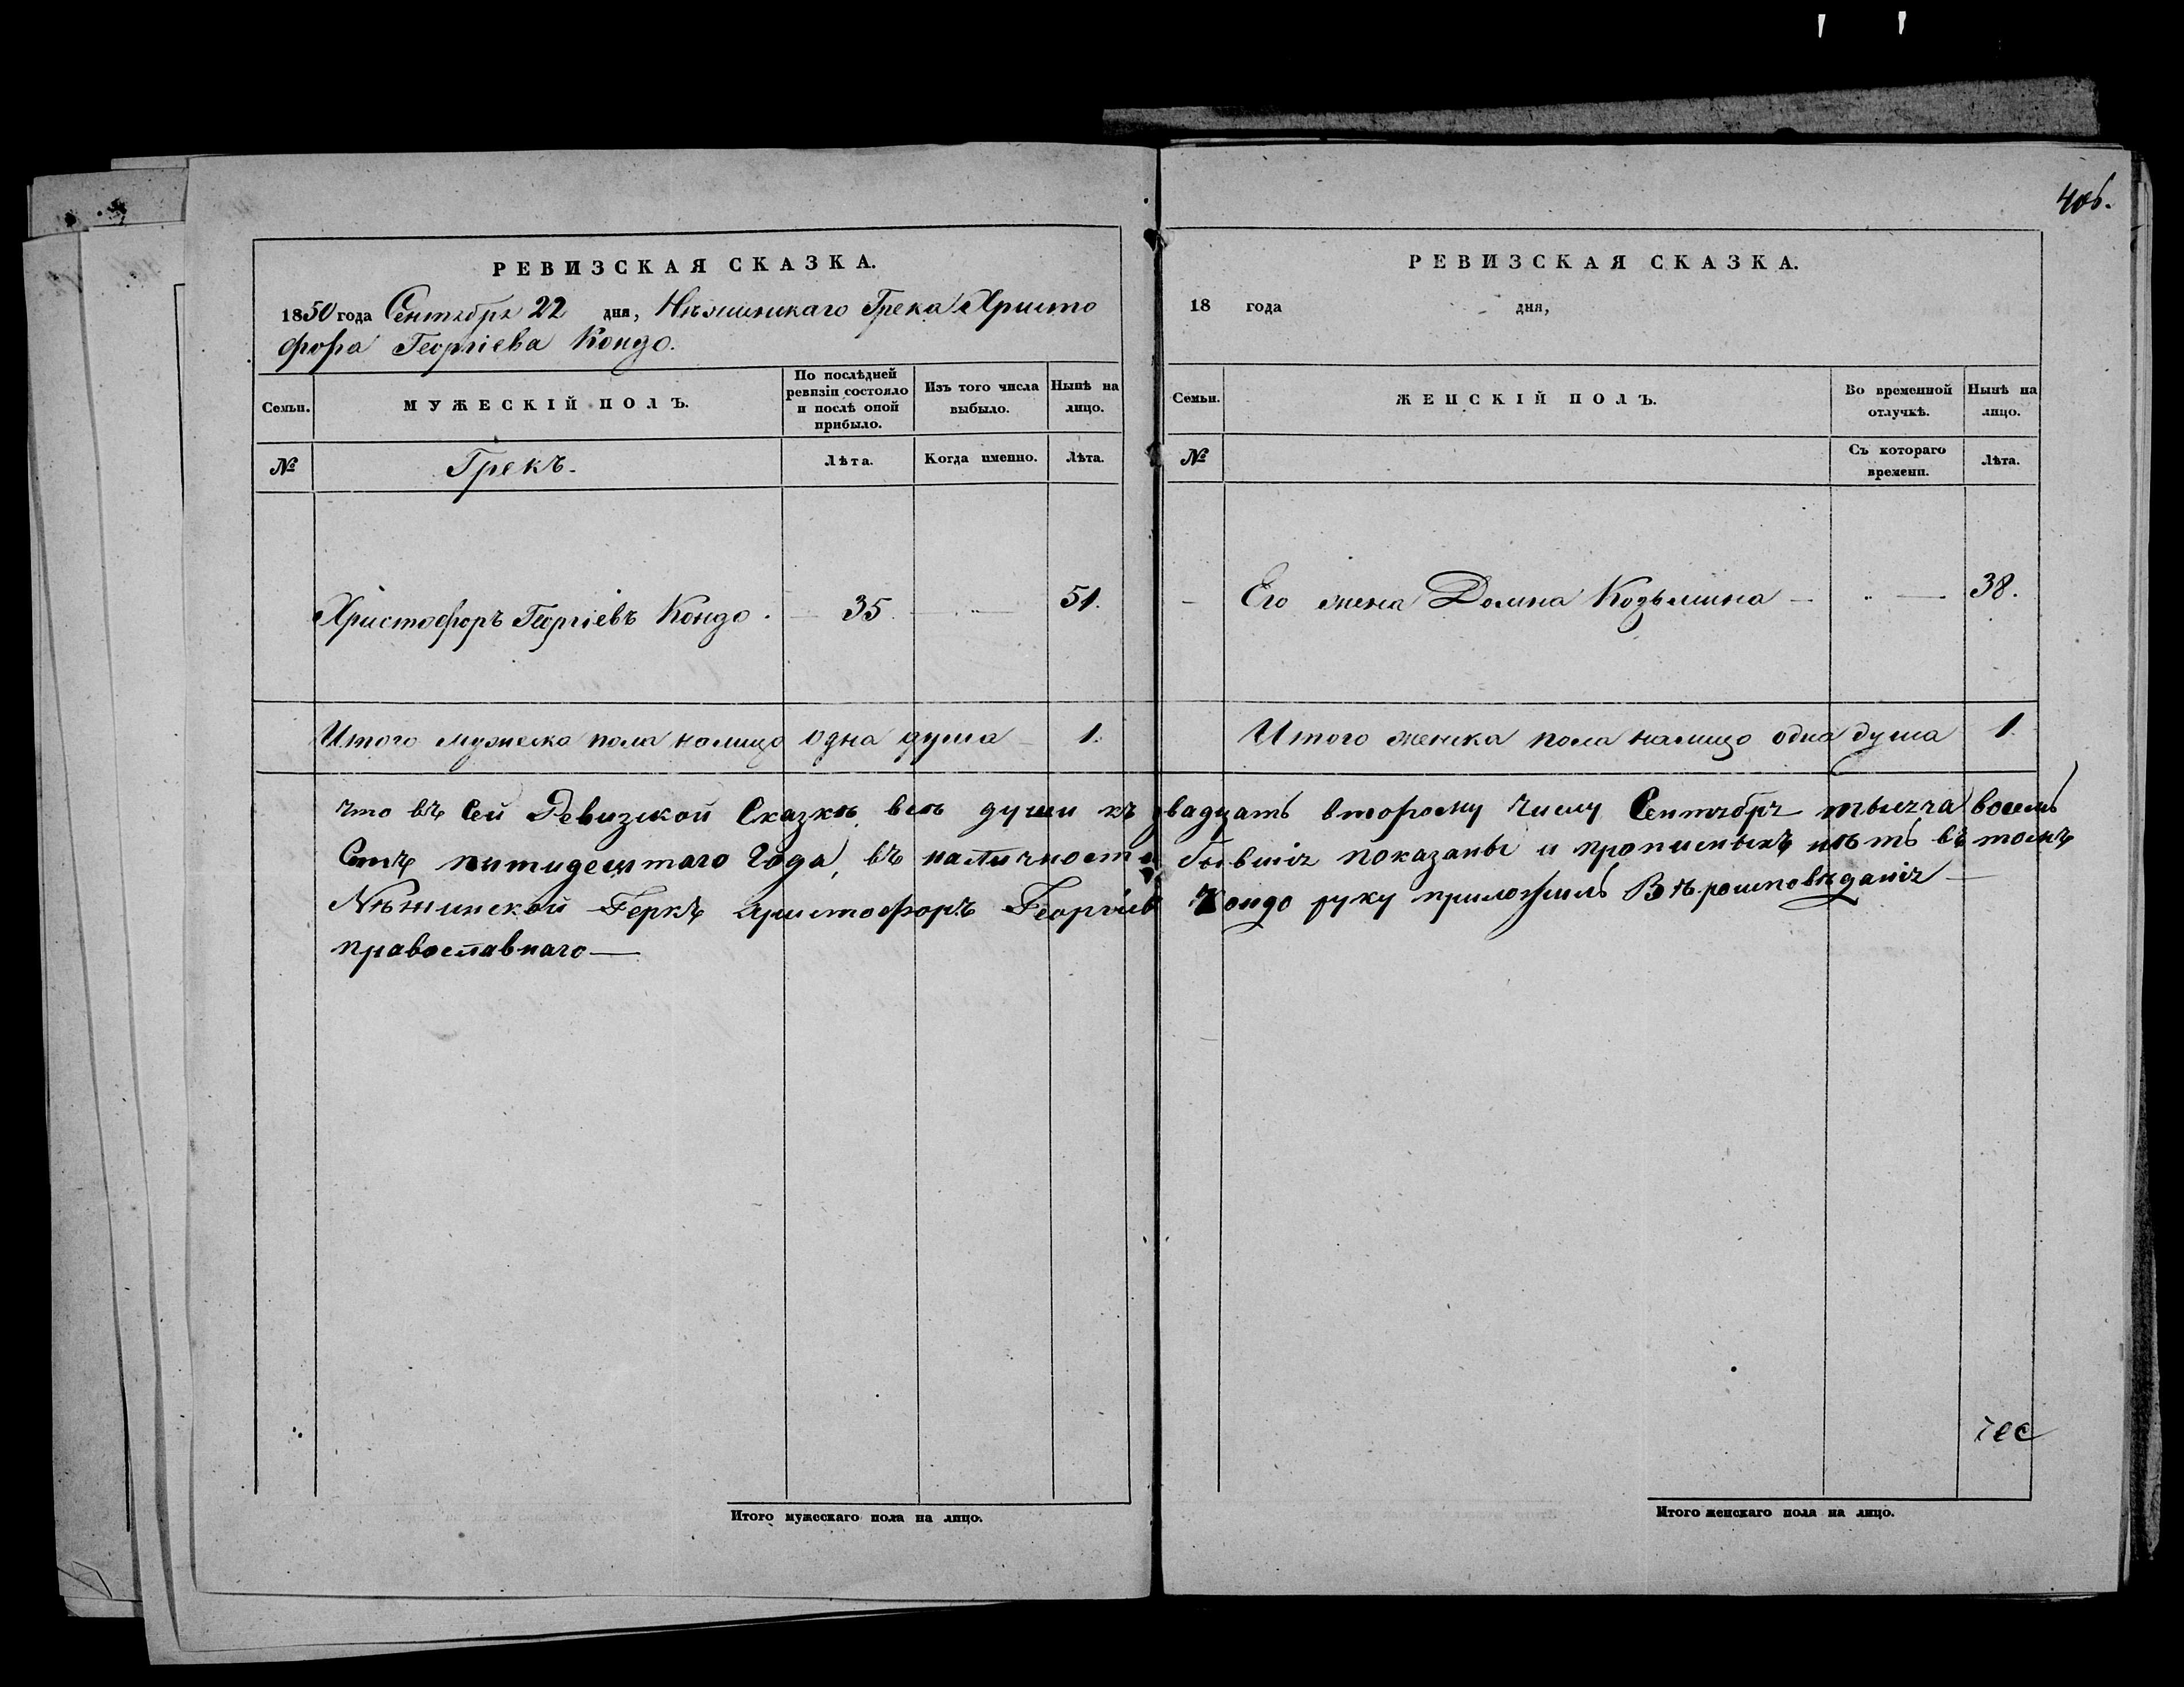 406.
РЕВИЗСКАЯ СКАЗКА.
1850 года Сентября 22 дня, Нѣжинскаго Грека Христо
фора Георгіева Кондо.
Семьи.
МУЖЕСКІЙ ПОЛЪ.
По послѣдней ревизіи состояло и послѣ оной прибыло.
Изъ того числа выбыло.
Нынѣ на лицо.
№
Грекъ.
Лѣта.
Когда именно.
Лѣта.
Христофоръ Георгіевъ Кондо. 35 51.
Итого мужеска пола налицо одна душа 1.
РЕВИЗСКАЯ СКАЗКА.
18 года дня,
Семьи.
ЖЕНСКІЙ ПОЛЪ.
Во временной отлучкѣ.
Нынѣ на лицо.
№
Съ котораго времени.
Лѣта.
Его жена Домна Козьмина — 38.
Итого женска пола налицо одна душа 1.
что въ Сей Ревизкой Сказкѣ всѣ души къ двадцать второму числу Сентября тысяча восемь
Сотъ пятидесятаго Года, въ наличности бывшія показаны и прописныхъ нѣтъ въ томъ
Нѣжинской Геркъ Христофоръ Георгіев Кондо руку приложилъ Вѣроисповѣданія —
православнаго —
Итого мужескаго пола на лицо.
Итого женскаго пола на лицо.